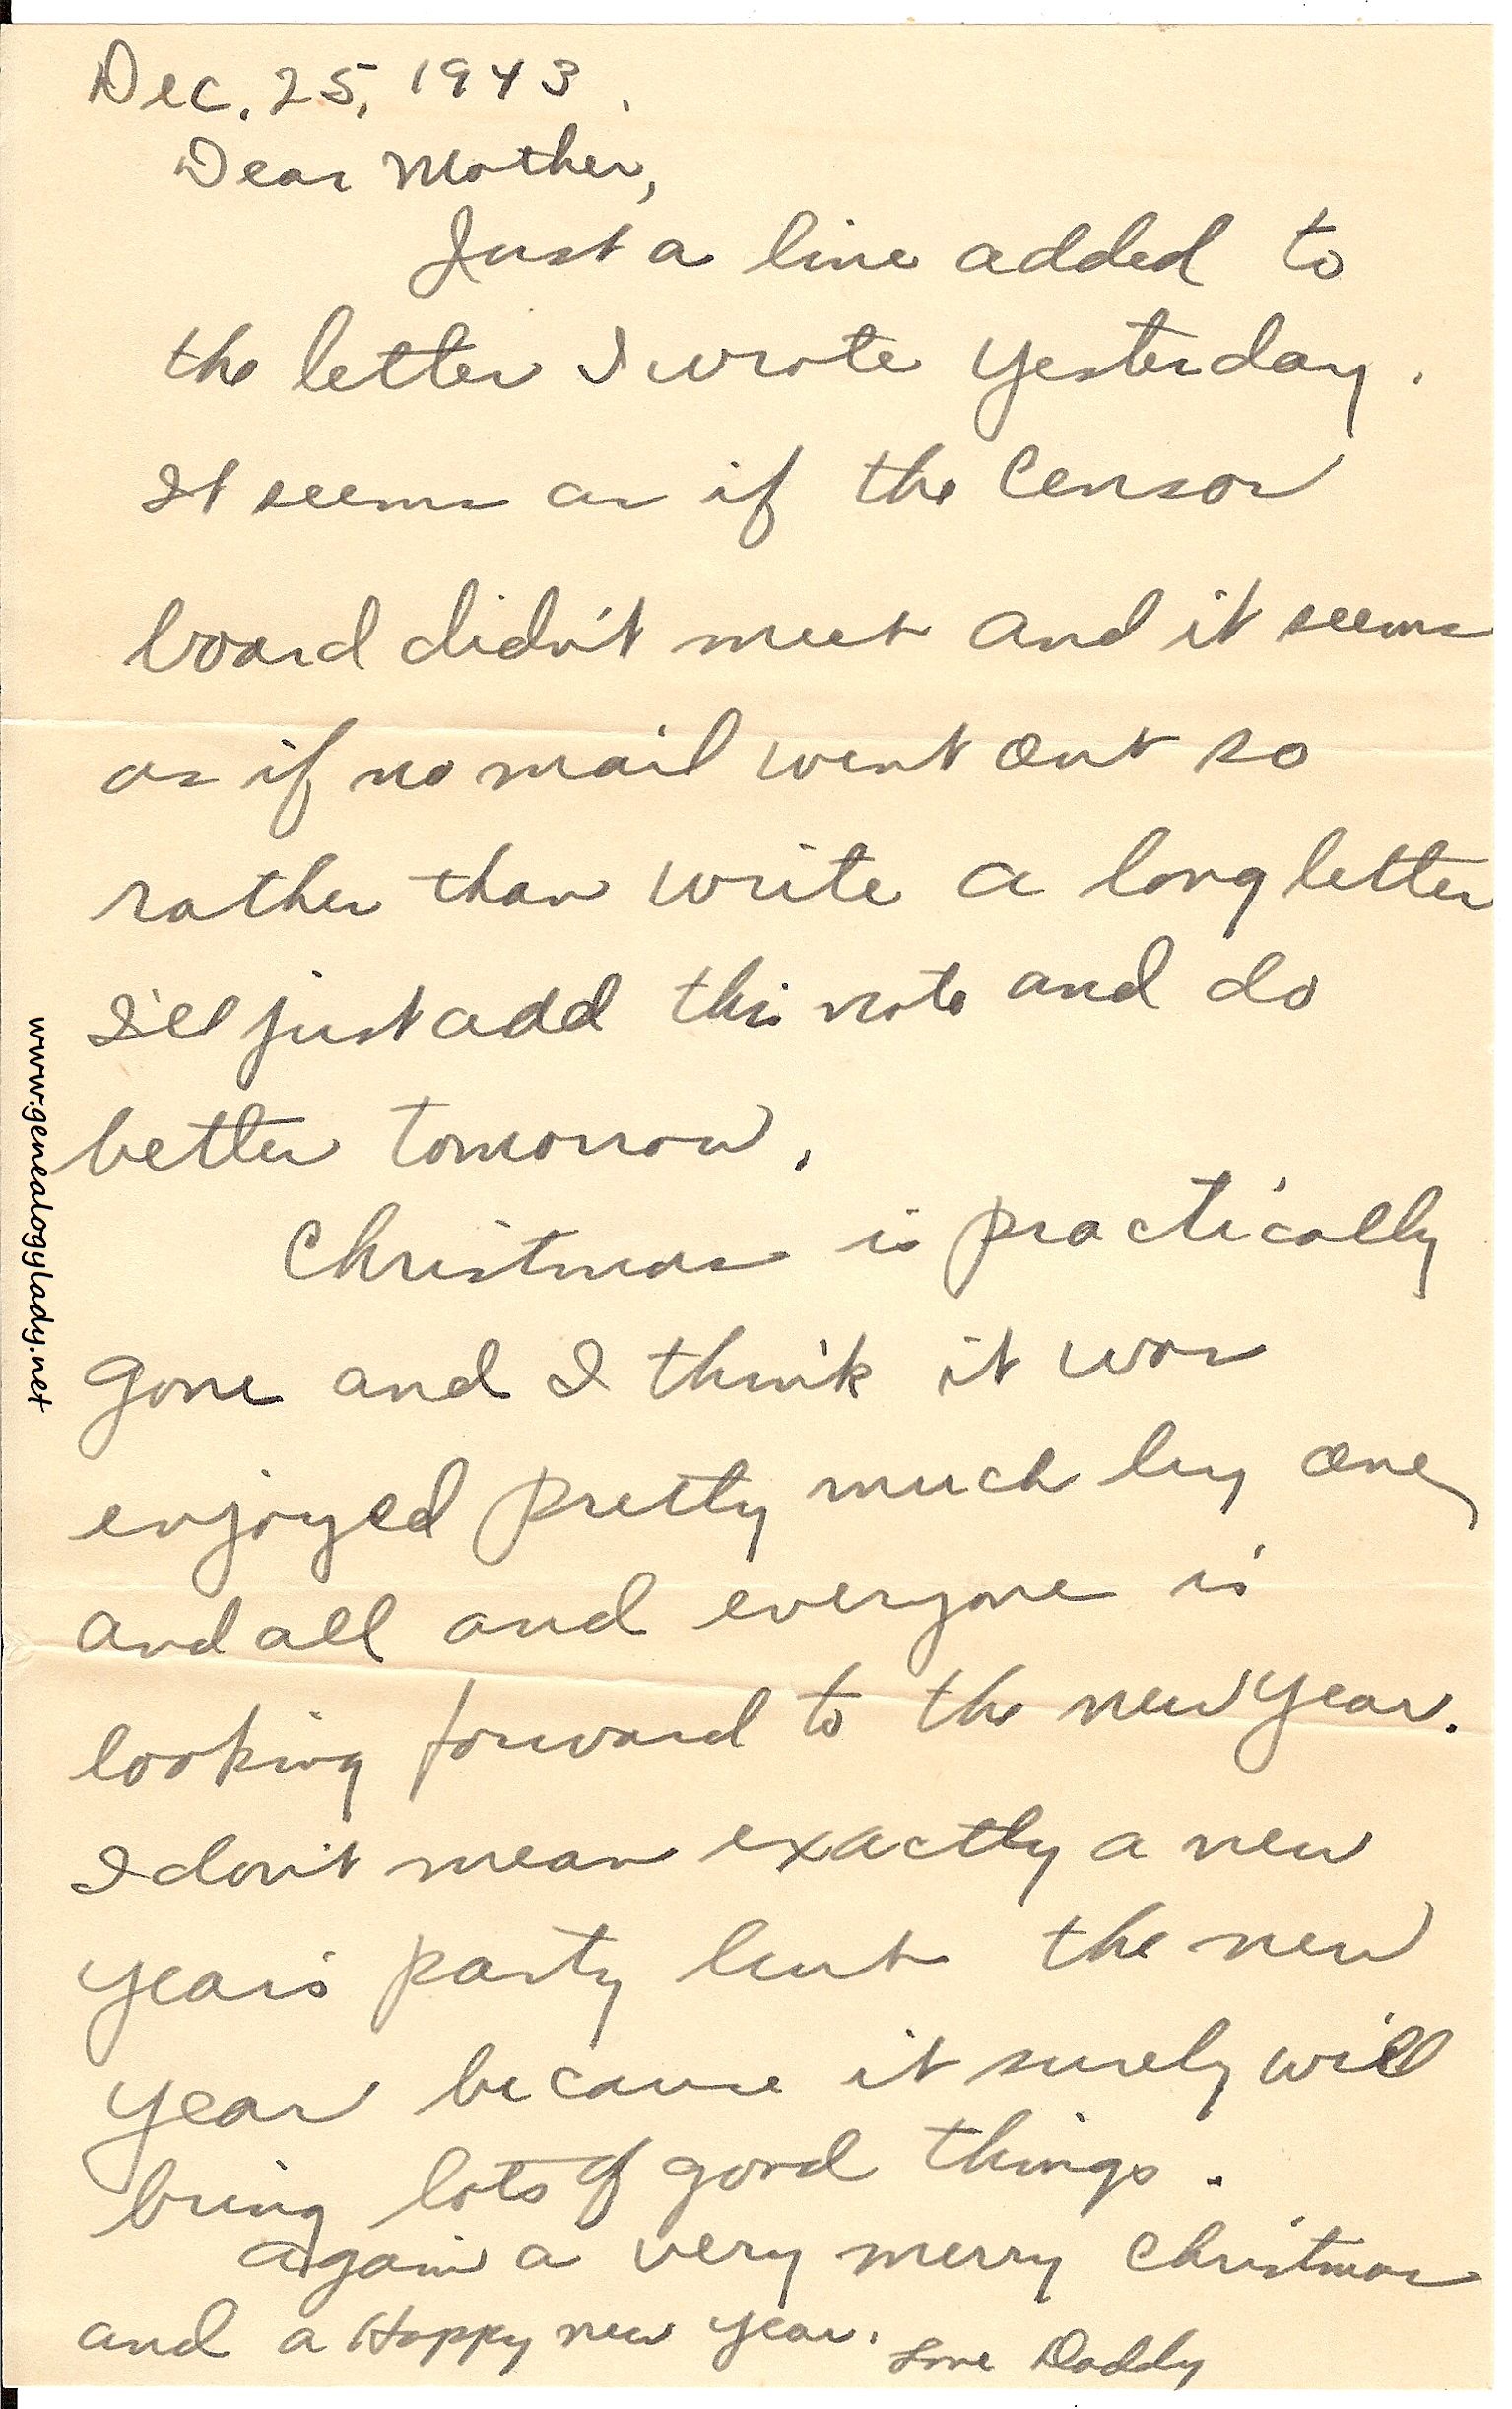 Dec. 25, 1943.
Dear Mother,
Just a line added to
the letter I wrote yesterday.
It seems as if the Censor
board didn't meet and it seems
as if no mail went out so
rather than write a long letter
I'll just add this note and do
better tomorrow.
Christmas is practically
gone and I think it was
enjoyed pretty much by one
and all and everyone is
looking forward to the new year.
I don't mean exactly a new
year's party but the new
year because it surely will
bring lots of good things.
Again a very merry Christmas
and a Happy new year. Love Daddy
www.genealogylady.net